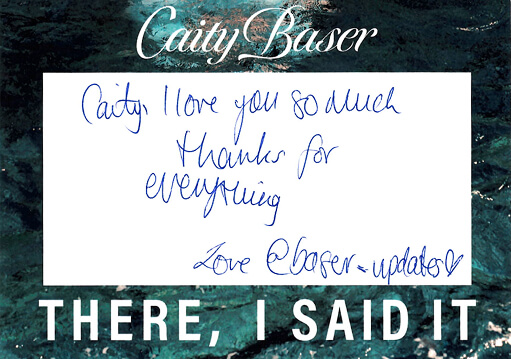 Caity Baser
Caity, I love you so much
thanks for
everything
Love @baser-updates♡
THERE, I SAID IT